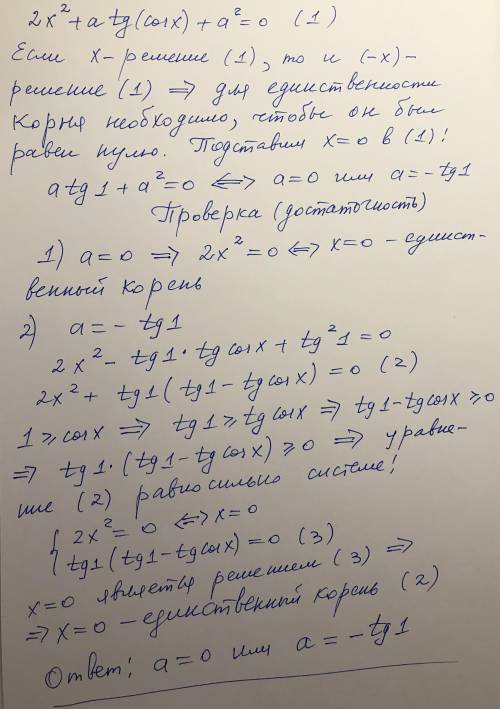 2x² + a tg(cosx) + a² = 0 (1)
Если x - решение (1), то и (-x) -
решение (1) ⇒ для единственности
корня необходимо, чтобы он был
равен нулю. Подставим x=0 в (1)!
a tg1 + a² = 0 ⇔ a=0 или a=-tg1
Проверка (достаточность)
1) a=0 ⇒ 2x²=0 ⇔ x=0 - единст-
венный корень
2) a = - tg1
2x² - tg1 · tg cosx + tg²1 = 0
2x² + tg1 (tg1 - tg cosx) = 0 (2)
1 ≥ cosx ⇒ tg1 ≥ tg cosx ⇒ tg1 - tg cosx ≥ 0
⇒ tg1 · (tg1 - tg cosx) ≥ 0 ⇒ уравне-
ние (2) равносильно системе!
{ 2x² = 0 ⇔ x=0
tg1 (tg1 - tg cosx) = 0 (3)
x=0 является решением (3) ⇒
⇒ x=0 - единственный корень (2)
Ответ: a=0 или a = -tg1